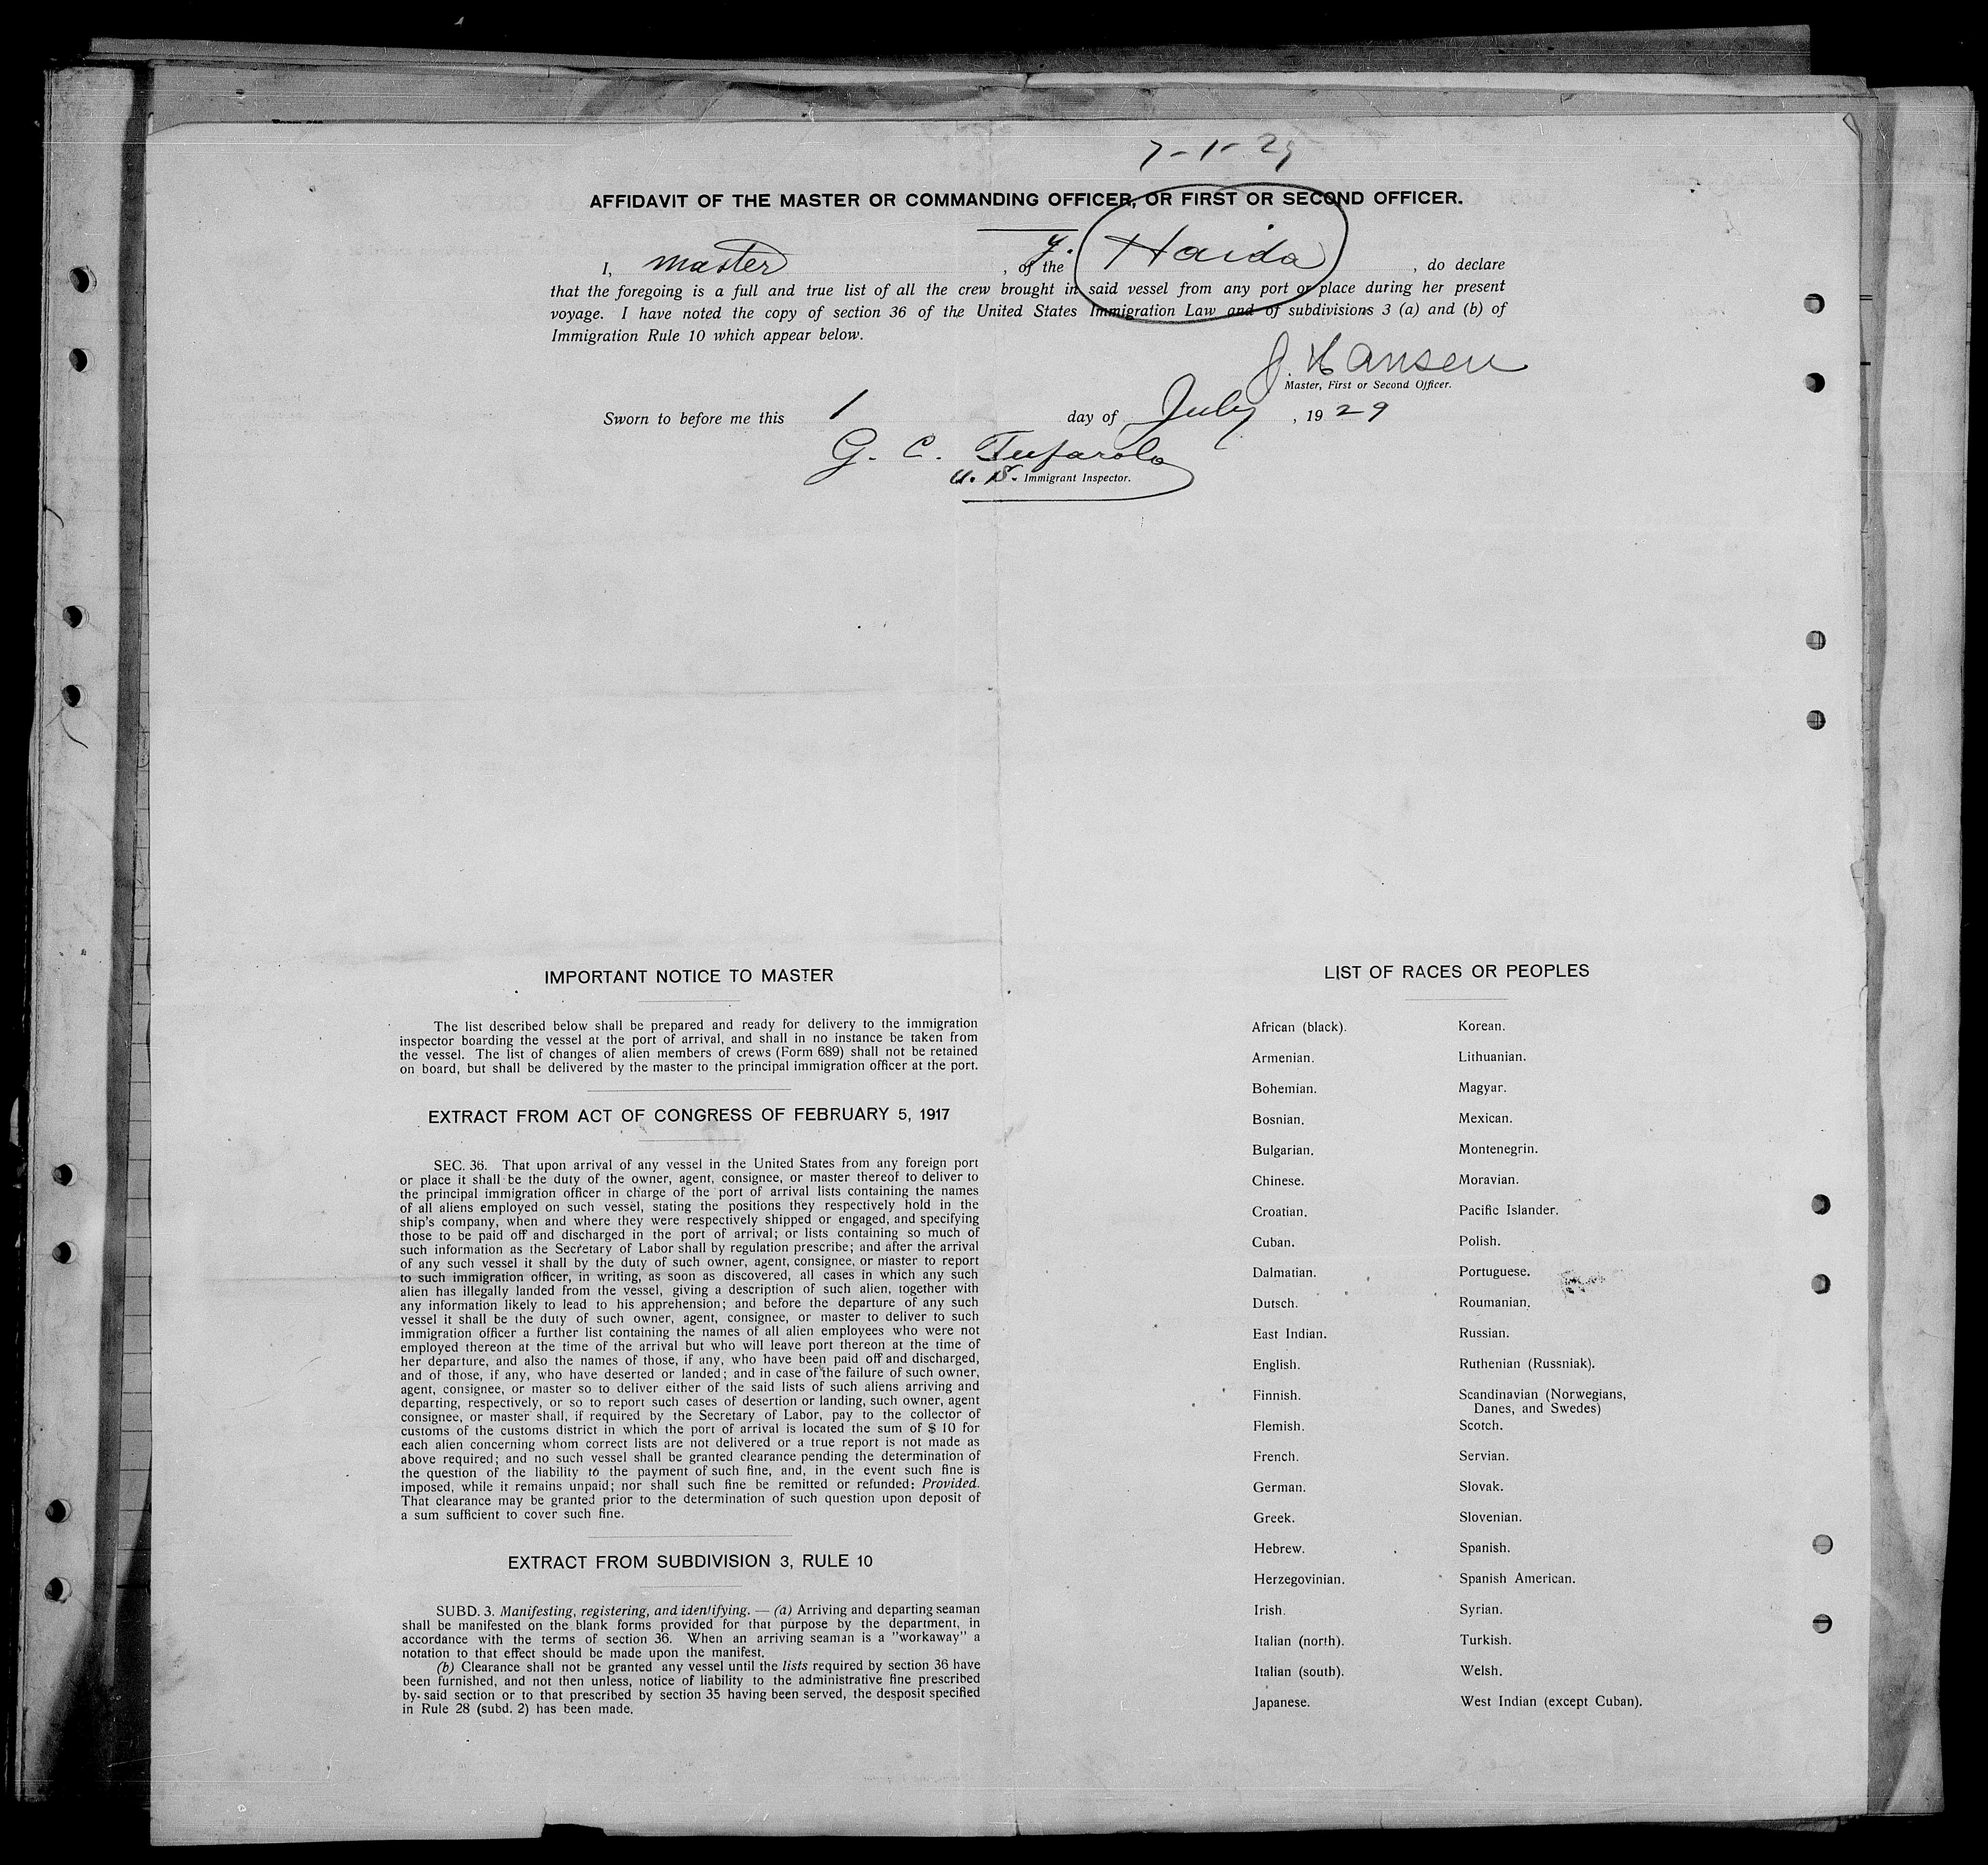 7-1-29
AFFIDAVIT OF THE MASTER OR COMMANDING OFFICER, OR FIRST OR SECOND OFFICER.
I, master, of the y. Haida, do declare
that the foregoing is a full and true list of all the crew brought in said vessel from any port or place during her present
voyage. I have noted the copy of section 36 of the United States Immigration Law and of subdivisions 3 (a) and (b) of
Immigration Rule 10 which appear below.
J. Hansen
Master, First or Second Officer.
Sworn to before me this 1 day of July, 1929
G. C. Tufarolo
U. S. Immigrant Inspector.
IMPORTANT NOTICE TO MASTER
The list described below shall be prepared and ready for delivery to the immigration
inspector boarding the vessel at the port of arrival, and shall in no instance be taken from
the vessel. The list of changes of alien members of crews (Form 689) shall not be retained
on board, but shall be delivered by the master to the principal immigration officer at the port.
EXTRACT FROM ACT OF CONGRESS OF FEBRUARY 5, 1917
SEC. 36. That upon arrival of any vessel in the United States from any foreign port
or place it shall be the duty of the owner, agent, consignee, or master thereof to deliver to
the principal immigration officer in charge of the port of arrival lists containing the names
of all aliens employed on such vessel, stating the positions they respectively hold in the
ship's company, when and where they were respectively shipped or engaged, and specifying
those to be paid off and discharged in the port of arrival; or lists containing so much of
such information as the Secretary of Labor shall by regulation prescribe; and after the arrival
of any such vessel it shall by the duty of such owner, agent, consignee, or master to report
to such immigration officer, in writing, as soon as discovered, all cases in which any such
alien has illegally landed from the vessel, giving a description of such alien, together with
any information likely to lead to his apprehension; and before the departure of any such
vessel it shall be the duty of such owner, agent, consignee, or master to deliver to such
immigration officer a further list containing the names of all alien employees who were not
employed thereon at the time of the arrival but who will leave port thereon at the time of
her departure, and also the names of those, if any, who have been paid off and discharged,
and of those, if any, who have deserted or landed; and in case of the failure of such owner,
agent, consignee, or master so to deliver either of the said lists of such aliens arriving and
departing, respectively, or so to report such cases of desertion or landing, such owner, agent
consignee, or master shall, if required by the Secretary of Labor, pay to the collector of
customs of the customs district in which the port of arrival is located the sum of $ 10 for
each alien concerning whom correct lists are not delivered or a true report is not made as
above required; and no such vessel shall be granted clearance pending the determination of
the question of the liability to the payment of such fine, and, in the event such fine is
imposed, while it remains unpaid; nor shall such fine be remitted or refunded: Provided.
That clearance may be granted prior to the determination of such question upon deposit of
a sum sufficient to cover such fine.
EXTRACT FROM SUBDIVISION 3, RULE 10
SUBD. 3. Manifesting, registering, and identifying. — (a) Arriving and departing seaman
shall be manifested on the blank forms provided for that purpose by the department, in
accordance with the terms of section 36. When an arriving seaman is a "workaway" a
notation to that effect should be made upon the manifest.
(b) Clearance shall not be granted any vessel until the lists required by section 36 have
been furnished, and not then unless, notice of liability to the administrative fine prescribed
by said section or to that prescribed by section 35 having been served, the desposit specified
in Rule 28 (subd. 2) has been made.
LIST OF RACES OR PEOPLES
African (black). Korean.
Armenian. Lithuanian.
Bohemian. Magyar.
Bosnian. Mexican.
Bulgarian. Montenegrin.
Chinese. Moravian.
Croatian. Pacific Islander.
Cuban. Polish.
Dalmatian. Portuguese.
Dutsch. Roumanian.
East Indian. Russian.
English. Ruthenian (Russniak).
Finnish. Scandinavian (Norwegians,
Danes, and Swedes)
Flemish. Scotch.
French. Servian.
German. Slovak.
Greek. Slovenian.
Hebrew. Spanish.
Herzegovinian. Spanish American.
Irish. Syrian.
Italian (north). Turkish.
Italian (south). Welsh.
Japanese. West Indian (except Cuban).